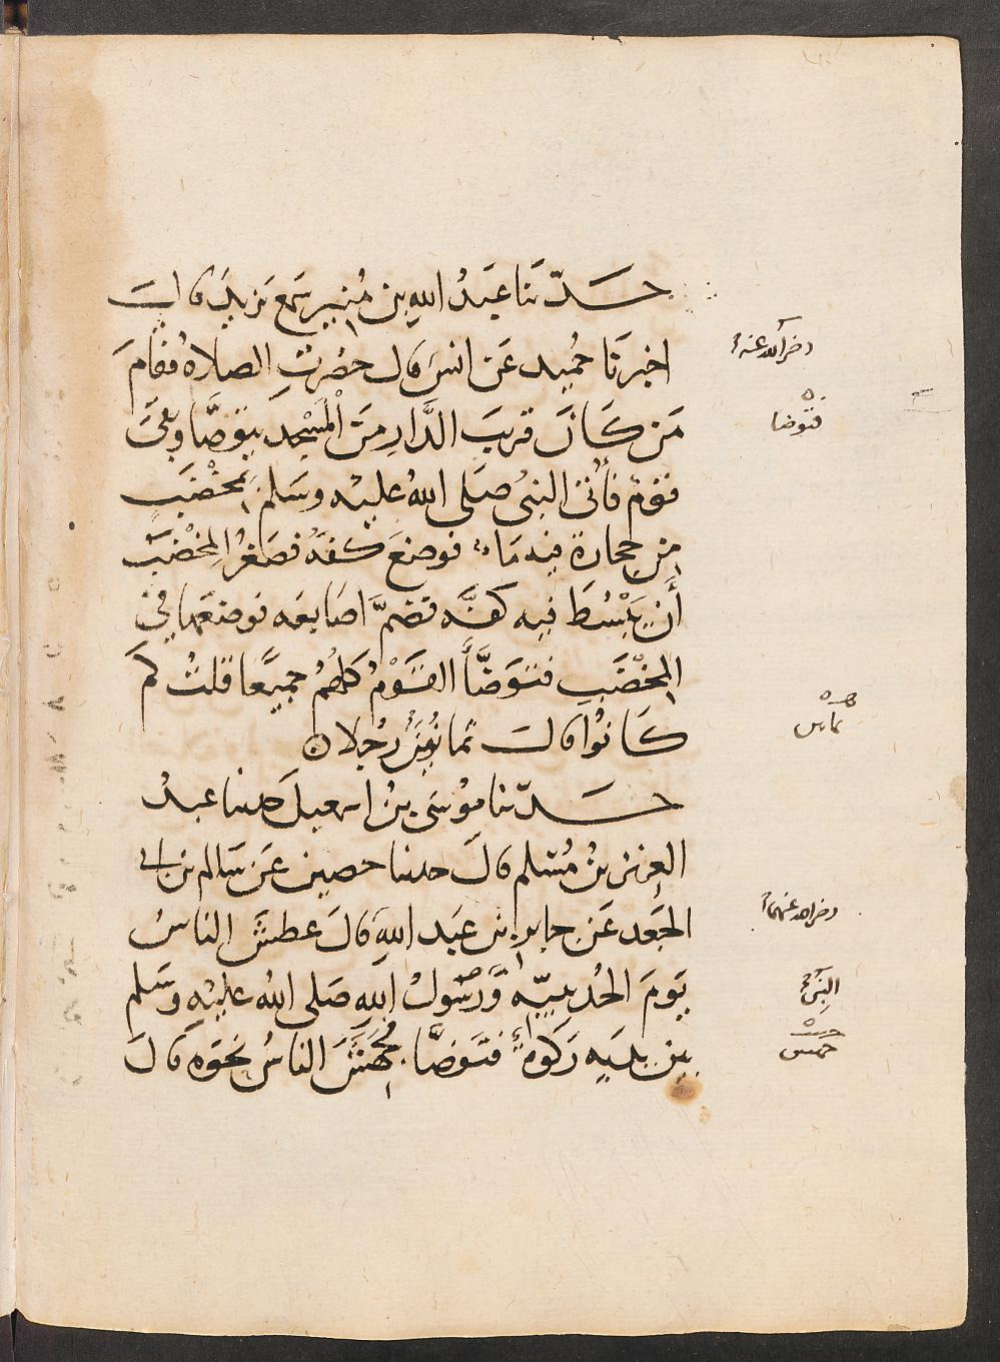 حدّثنا عَبدُ اللهِ بن مُنِير سَمعَ يَزيدَ قالَ
اخبرَنا حُميد عَن انسَ قال حضرتِ الصلاةُ فقامَ
رضي الله عنه
مَن كَانَ قريبَ الدَّارِ مِنَ الْمَسْجِدِ يتوضَّا وبقيَ
فتوضا
قومٌ فأُتىَ النبيُ صَلى اللهُ عليْه وسَلم بِمِخْضَبٍ
مِن حجارة فيه مَاء فوضعَ كفهُ فصَغُر المِخْضَبُ
أَن يَبْسُطَ فيه كفَّه فضمَّ اصَابعَه فوضعَها في
المِخْضَبِ فتوَضَّأَ القَوْمُ كلهُمْ جميعًا قلتُ كم
كَانوُا قالَ ثمانُونَ رجُلا
ثمانين
حدّثنا موُسَى بنُ اسمعيلَ حدثنا عبدُ
العزيز بنُ مُسْلم قالَ حدثنا حصين عَن سَالم بن ابي
الجَعد عَن جابر بن عَبد اللهِ قالَ عطشَ الناسُ
رضي الله عنهما
يَومَ الحُديبيّه وَرَسُولُ اللهِ صَلى اللهُ عليْهِ وسَلم
النبي
بين يديه رَكوة فتوَضَّا جَهَشَ الناسُ نحوَهِ قالَ